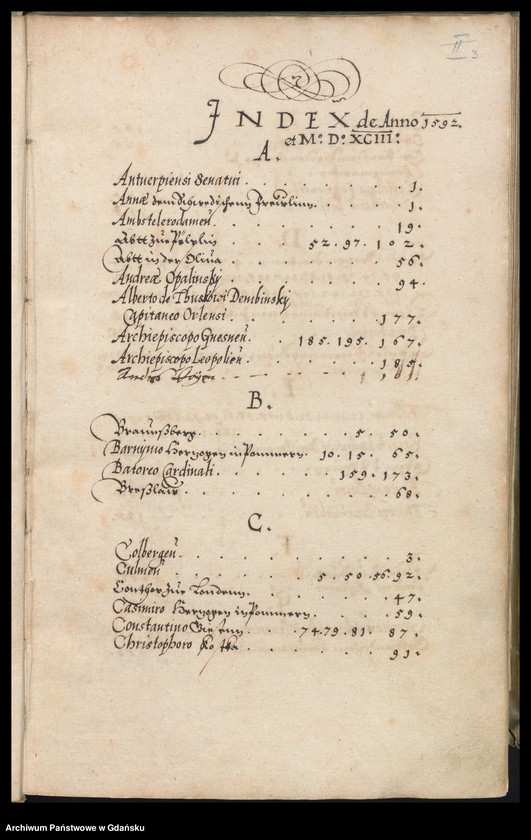 II 3
INDEX de Anno 1592.
et M.° D.° XCIII.°
A.
Antuerpiensi Senatui . . . . . . . . 1.
Annæ dem Schwedischenn Freulinn. . . . . 1.
Ambstelerodamen. . . . . . . . 19.
Abtt zur Pölplin . . . . 52. 97. 102.
Abtt in der Oliua . . . . . . . 56.
Andreæ Opalinskÿ . . . . . . . 94.
Alberto de Dembinskÿ
Capitaneo . . . . . . 177.
Archiepiscopo Gnesnen̄. . . 185. 195. 167.
Archiepiscopo Leopolien̄ . . . . . . 185.
B.
Braunßberg. . . . . . . 5. 50.
Barnymo Hertzogen in Pommern. 10. 15. 65.
Batoreo Cardinali . . . . . 159. 173.
Breßlaw . . . . . . . . 68.
C.
Colbergen̄ . . . . . . . . 3.
Culmen̄ . . . . . . 5. 50. 56. 92.
Conthor zue Londenn. . . . . . . 47.
Casimiro Hertzogen in Pommern. . . . . 59.
Constantino . . . 74. 79. 81. 87.
Christophoro Kostka . . . . . . 91.
Archiwum Państwowe w Gdańsku